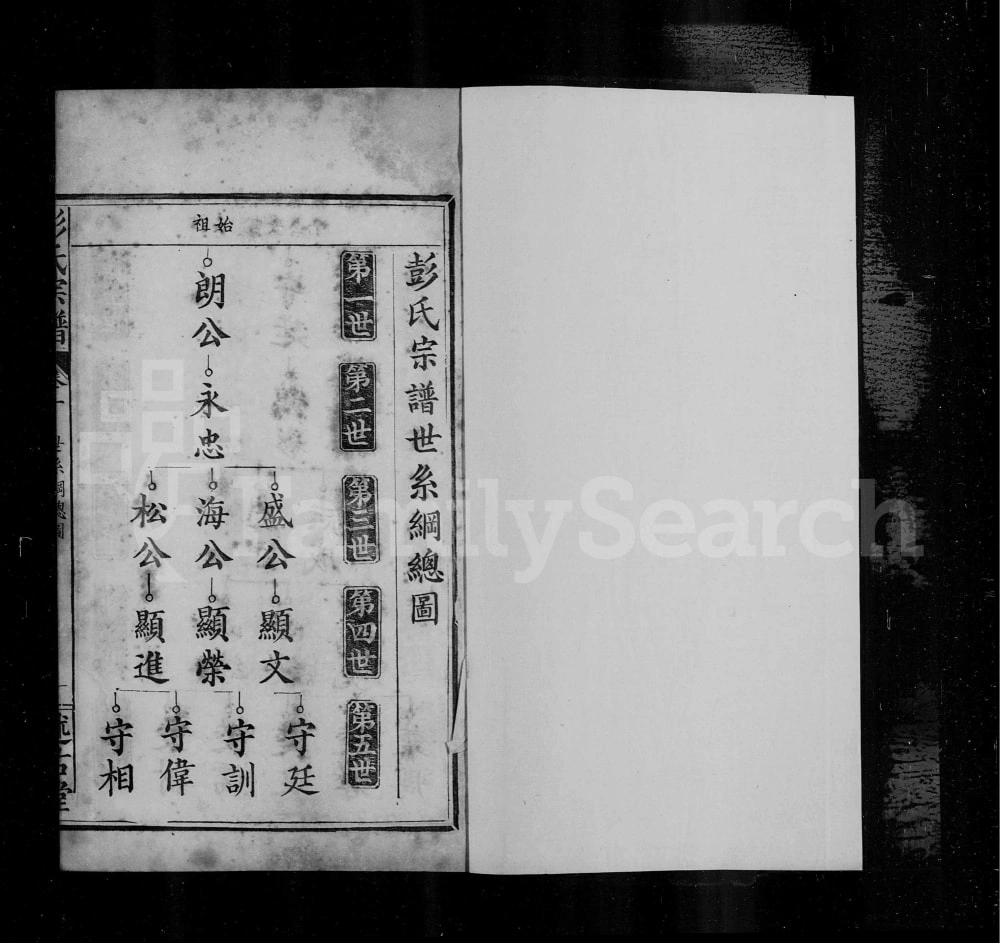 彭氏宗譜世系綱總圖
第一世
第二世
第三世
第四世
第五世
始祖
朗公
永忠
盛公
海公
松公
顯文
顯榮
顯進
守廷
守訓
守偉
守相
彭氏宗譜
卷一
世系綱總圖
述古堂
FamilySearch